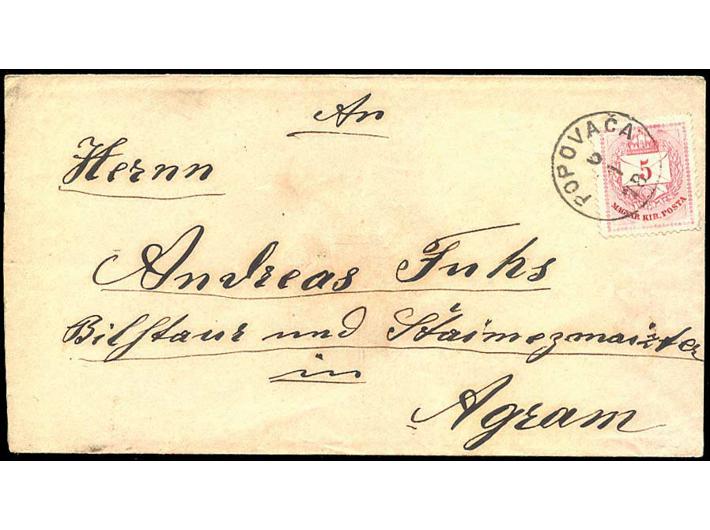 An
Hernn
Andreas Fuhs
Bilhaur und Staimezmaister
in
Agram
POPOVAČA
5
MAGYAR KIR. POSTA